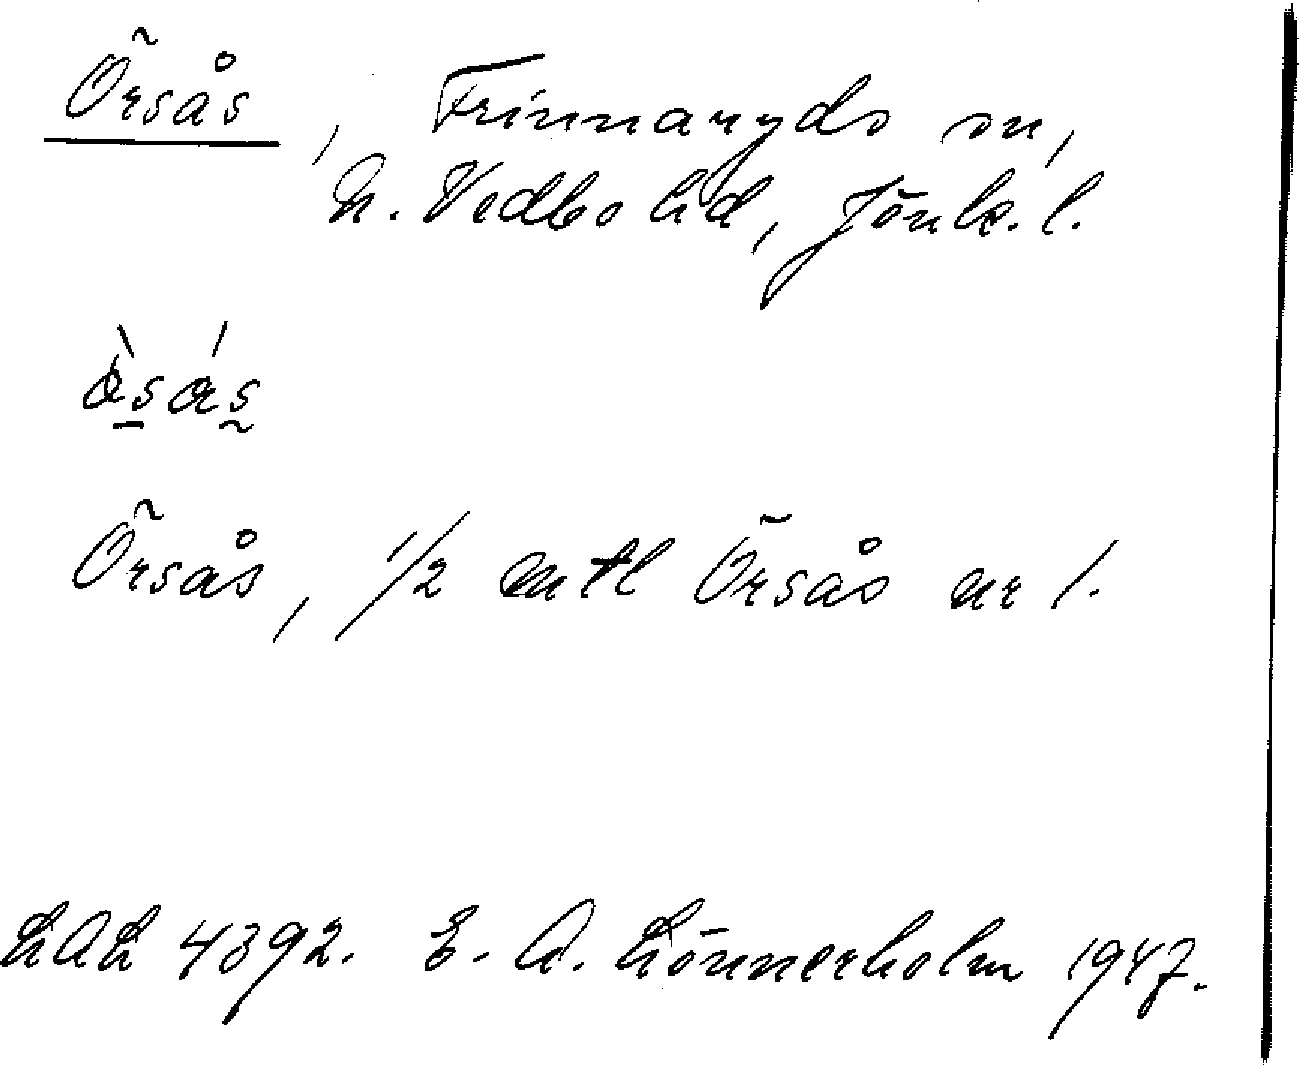 Örsås, Frinnaryds sn,
N. Vedbo hd, Jönk. l.
Örsås, 1/2 mtl Örsås nr 1.
LAL 4392. E. A. Lönnerholm 1947.